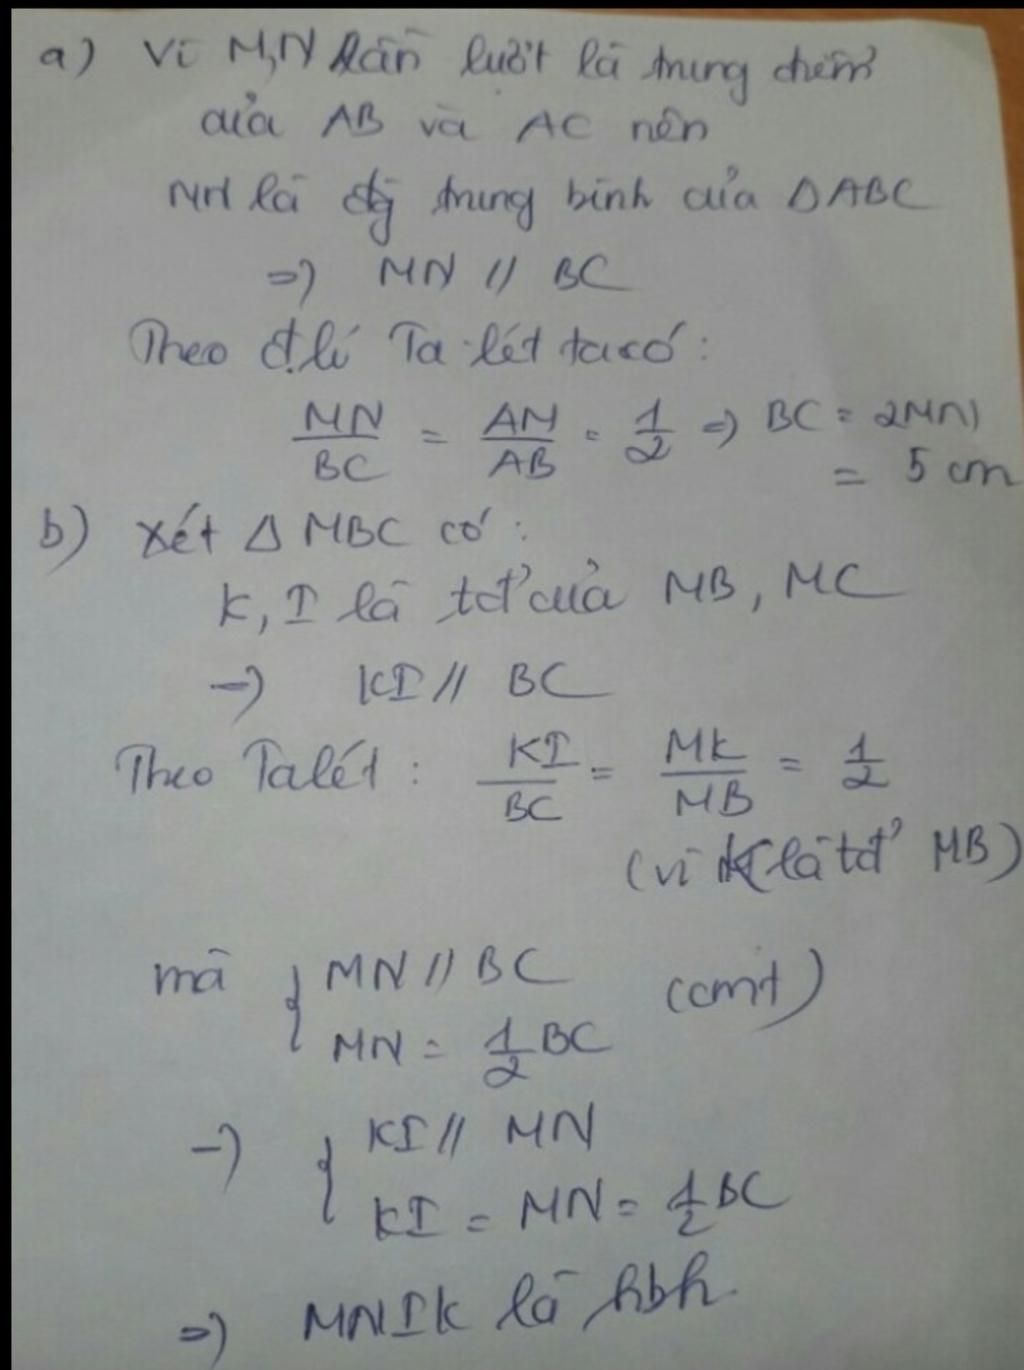 a) Vì M,N lần lượt là trung điểm
của AB và AC nên
MN là đg trung bình của ΔABC
=> MN // BC
Theo đ.lí Ta-lét ta có:
MN/BC = AM/AB = 1/2 => BC = 2MN
= 5 cm
b) Xét Δ MBC có:
K, I là tđ' của MB, MC
-> KI // BC
Theo Talét: KI/BC = MK/MB = 1/2
(vì K là tđ' MB)
mà { MN // BC (cmt)
MN = 1/2 BC
-> { KI // MN
KI = MN = 1/2 BC
=> MNIK là hbh.